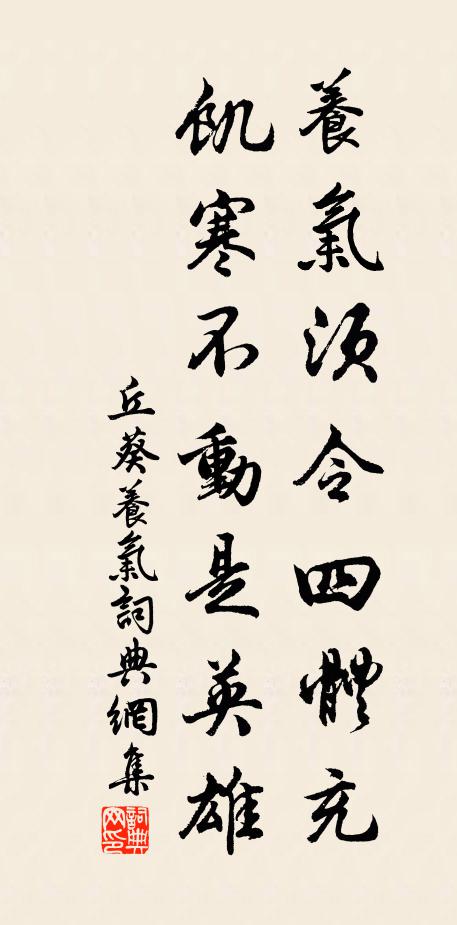 養氣須令四體充
飢寒不動是英雄
丘葵養氣詞典網集
詞典網印